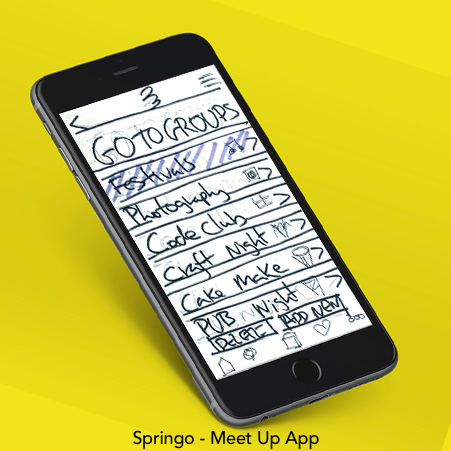 GO TO GROUPS
Festivals
Photography
Code Club
Craft Night
Cake Make
PUB Night
DELETE ADD NEW
Springo - Meet Up App